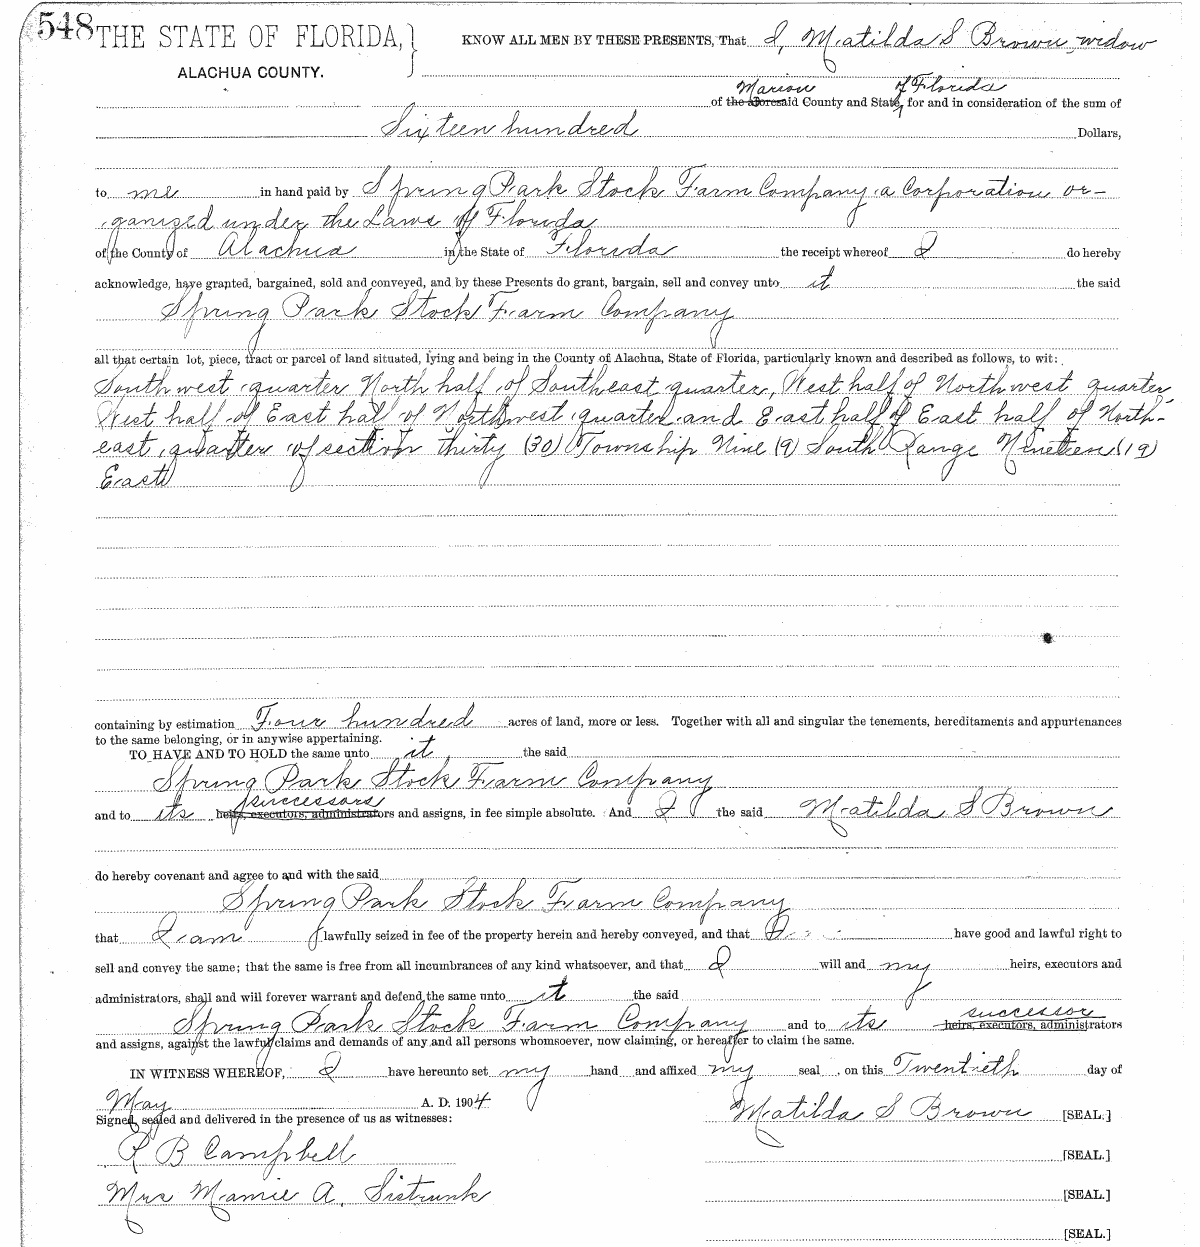 548 THE STATE OF FLORIDA, } KNOW ALL MEN BY THESE PRESENTS, That I, Matilda S Brown widow
ALACHUA COUNTY.
Marion of Florida
of the aforesaid County and State, for and in consideration of the sum of
Sixteen hundred Dollars,
to me in hand paid by Spring Park Stock Farm Company, a Corporation or-
ganized under the Laws of Florida
of the County of Alachua in the State of Florida the receipt whereof I do hereby
acknowledge, have granted, bargained, sold and conveyed, and by these Presents do grant, bargain, sell and convey unto it the said
Spring Park Stock Farm Company
all that certain lot, piece, tract or parcel of land situated, lying and being in the County of Alachua, State of Florida, particularly known and described as follows, to wit:
Southwest quarter, North half of Southeast quarter, West half of Northwest quarter
West half of East half of Northwest quarter and East half of East half of North-
east quarter of section thirty (30) Township Nine (9) South Range Nineteen (19)
East
containing by estimation Four hundred acres of land, more or less. Together with all and singular the tenements, hereditaments and appurtenances
to the same belonging, or in anywise appertaining.
TO HAVE AND TO HOLD the same unto it the said
Spring Park Stock Farm Company
successors
and to its heirs, executors, administrators and assigns, in fee simple absolute. And I the said Matilda S Brown
do hereby covenant and agree to and with the said
Spring Park Stock Farm Company
that I am lawfully seized in fee of the property herein and hereby conveyed, and that I have good and lawful right to
sell and convey the same; that the same is free from all incumbrances of any kind whatsoever, and that I will and my heirs, executors and
administrators, shall and will forever warrant and defend the same unto it the said
successor
Spring Park Stock Farm Company and to its heirs, executors, administrators
and assigns, against the lawful claims and demands of any and all persons whomsoever, now claiming, or hereafter to claim the same.
IN WITNESS WHEREOF, I have hereunto set my hand and affixed my seal on this Twentieth day of
May A. D. 1904 Matilda S Brown [SEAL.]
Signed, sealed and delivered in the presence of us as witnesses:
R B Campbell [SEAL.]
Mrs Mamie A. Sistrunk [SEAL.]
[SEAL.]